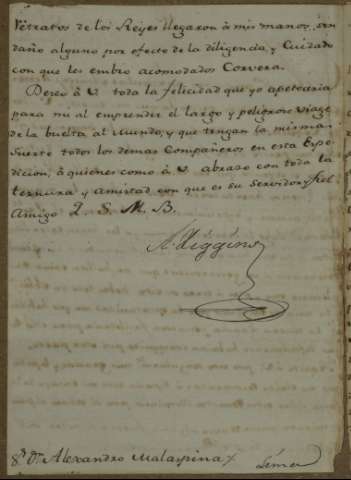 retratos de los Reyes llegaron à mis manos, sin
daño alguno por efecto de la diligencia, y Cuidado
con que les embio acomodados Corvera.
Deseo à V. toda la felicidad que yo apetecería
para mi al emprender el largo y peligroso viage
de la buelta al Mundo, y que tengan la misma
Suerte todos los demas Compañeros en esta Expe
dicion, à quienes como à V. abrazo con toda la
ternura y amistad con que es su servidor y fiel
Amigo Q. S. M. B.
Higgins
Sr. Dn. Alexandro Malaspina